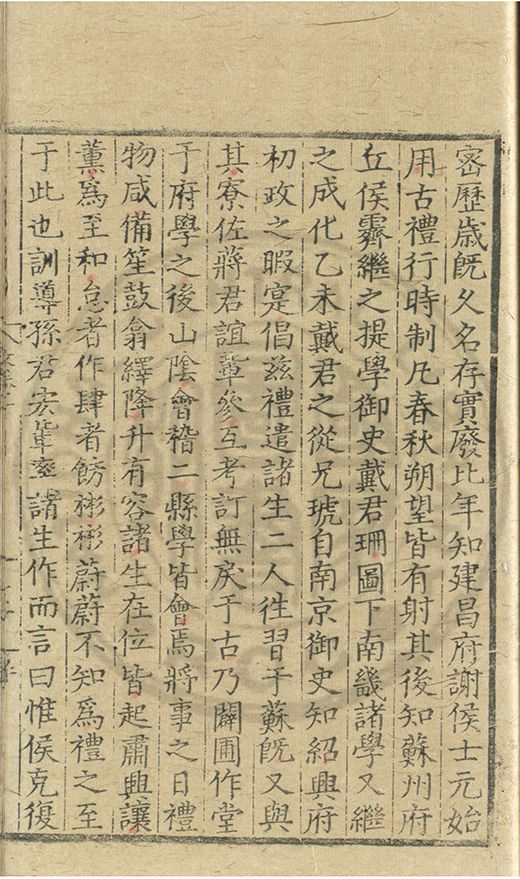 密歷歲旣久名存實廢比年知建昌府謝侯士元始
用古禮行時制凡春秋朔望皆有射其後知蘇州府
丘侯霽繼之提學御史戴君珊圖下南畿諸學又繼
之成化乙未戴君之從兄琥自南京御史知紹興府
初政之暇寔倡玆禮遣諸生二人徃習于蘇旣又與
其寮佐蔣君誼軰參互考訂無戾于古乃闢圃作堂
于府學之後山陰會稽二縣學皆會焉將事之日禮
物咸備笙鼓翕繹降升有容諸生在位皆起肅興讓
薰爲至和怠者作肆者飭彬彬蔚蔚不知爲禮之至
于此也訓導孫君宏軰率諸生作而言曰惟侯克復